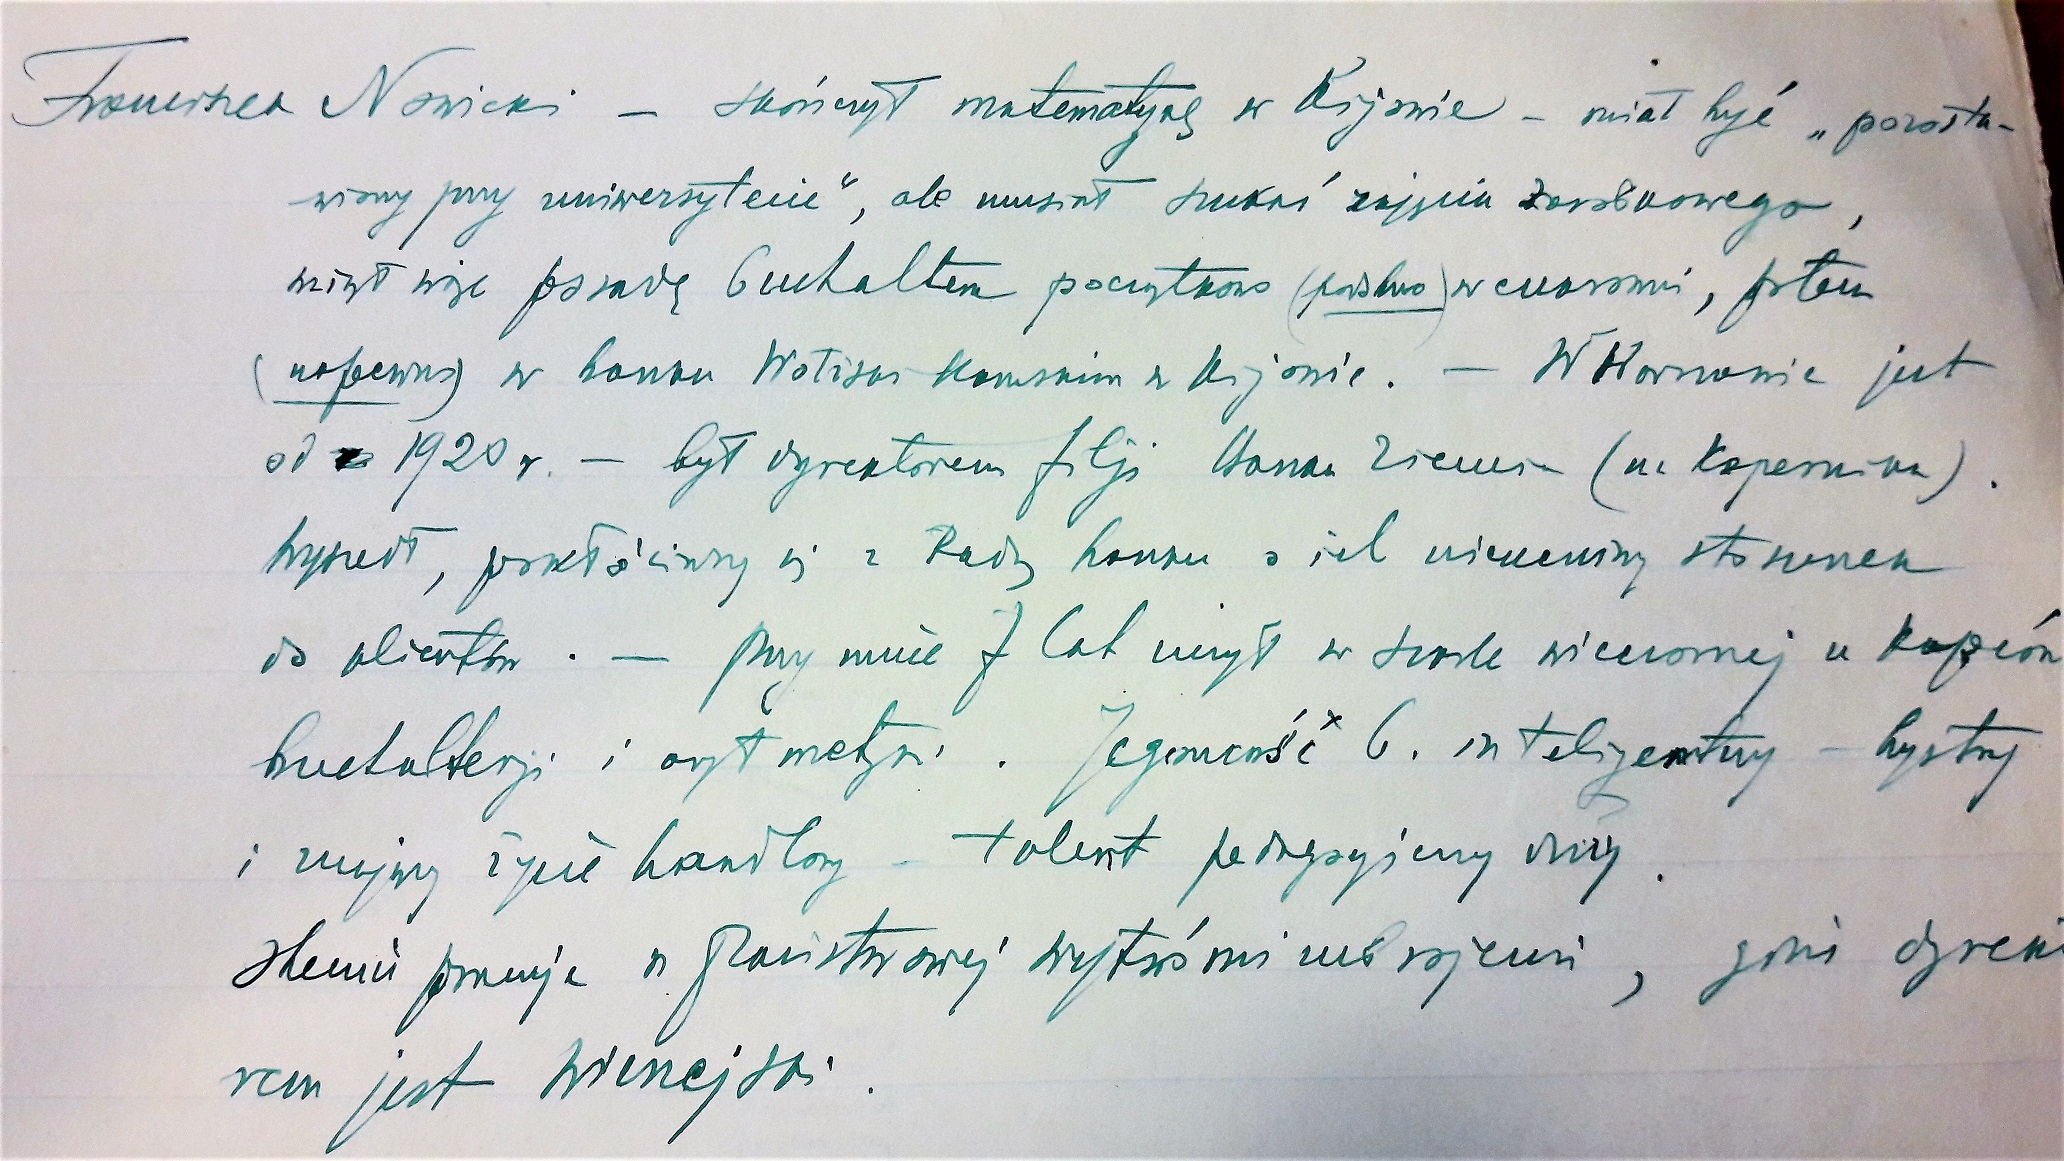 Franciszek Nowicki — skończył matematykę w Kijowie – miał być „pozosta-
wiony przy uniwersytecie“, ale musiał szukać zajęcia zarobkowego,
wziął więc posadę buchaltera początkowo (podobno) w cukrowni, potem
(napewno) w banku Wołżsko-Kamskim w Kijowie. — W Warszawie jest
od 1920 r. — był dyrektorem filji Banku Ziemian (na Kopernika).
Wyszedł, pokłóciwszy się z Radą banku o jej niezmienny stosunek
do klientów. — Przy mnie 7 lat uczył w szkole wieczornej u Kupców
buchalterji i arytmetyki. Jegomość b. inteligentny – bystry
i znający życie handlowy – talent pedagogiczny duży.
Obecnie pracuje w Państwowej wytwórni uzbrojenia, gdzie dyrekt
rem jest Wieniejski.